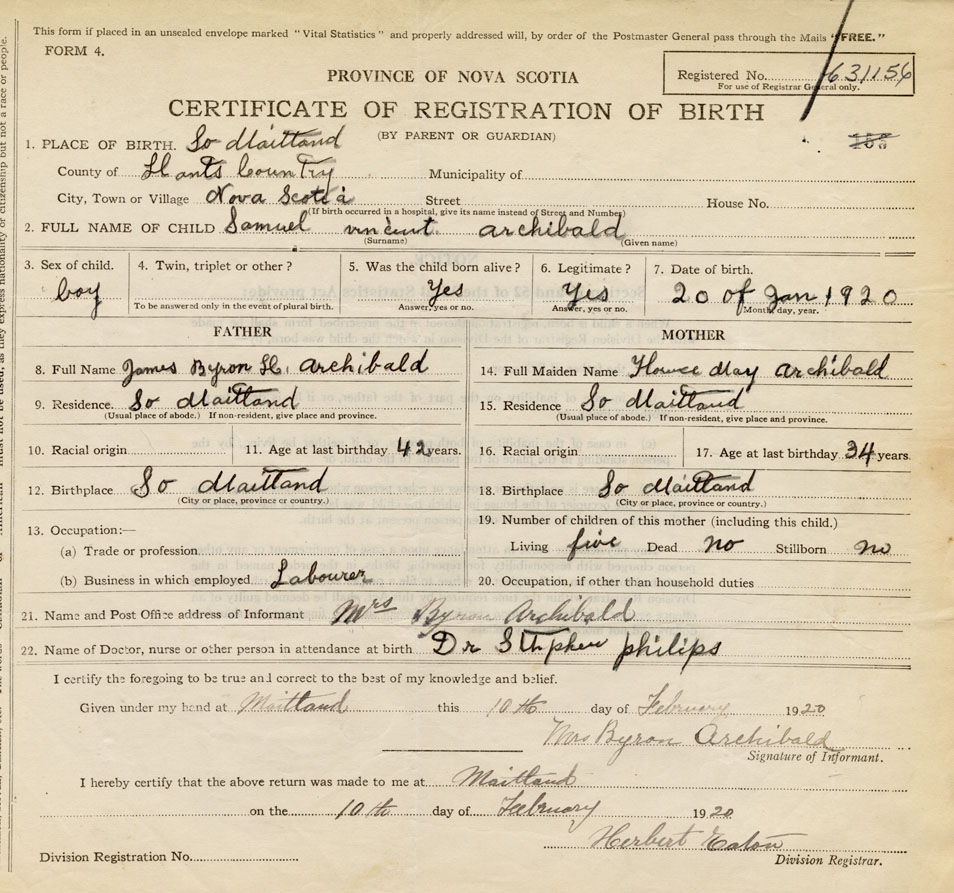 This form if placed in an unsealed envelope marked "Vital Statistics" and properly addressed will, by order of the Postmaster General pass through the Mails "FREE."
FORM 4.
Registered No. 631156
For use of Registrar General only.
PROVINCE OF NOVA SCOTIA
CERTIFICATE OF REGISTRATION OF BIRTH
(BY PARENT OR GUARDIAN)
1. PLACE OF BIRTH. So Maitland
County of Hants Country Municipality of
City, Town or Village Nova Scotia Street House No.
(If birth occurred in a hospital, give its name instead of Street and Number)
2. FULL NAME OF CHILD Samuel vincent archibald
(Surname) (Given name)
3. Sex of child. 4. Twin, triplet or other? 5. Was the child born alive? 6. Legitimate? 7. Date of birth.
boy Yes Yes 20 of Jan 1920
To be answered only in the event of plural birth. Answer, yes or no. Answer, yes or no. Month, day, year.
FATHER
8. Full Name James Byron H. Archibald
9. Residence. So Maitland
(Usual place of abode.) If non-resident, give place and province.
10. Racial origin 11. Age at last birthday 42 years.
12. Birthplace So Maitland
(City or place, province or country.)
13. Occupation:—
(a) Trade or profession
(b) Business in which employed Labourer
MOTHER
14. Full Maiden Name May Archibald
15. Residence So Maitland
(Usual place of abode.) If non-resident, give place and province.
16. Racial origin 17. Age at last birthday 34 years.
18. Birthplace So Maitland
(City or place, province or country.)
19. Number of children of this mother (including this child.)
Living five Dead no Stillborn no
20. Occupation, if other than household duties
21. Name and Post Office address of Informant Mrs Byron Archibald
22. Name of Doctor, nurse or other person in attendance at birth Dr philips
I certify the foregoing to be true and correct to the best of my knowledge and belief.
Given under my hand at Maitland this 10th day of February 1920
Mrs Byron Archibald
Signature of Informant.
I hereby certify that the above return was made to me at Maitland
on the 10th day of February 1920
Herbert Eaton
Division Registration No. Division Registrar.